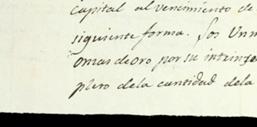 capital al vencimiento de
siguiente forma. Los Un m
onzas de oro por su intrinse
plero dela cantidad dela